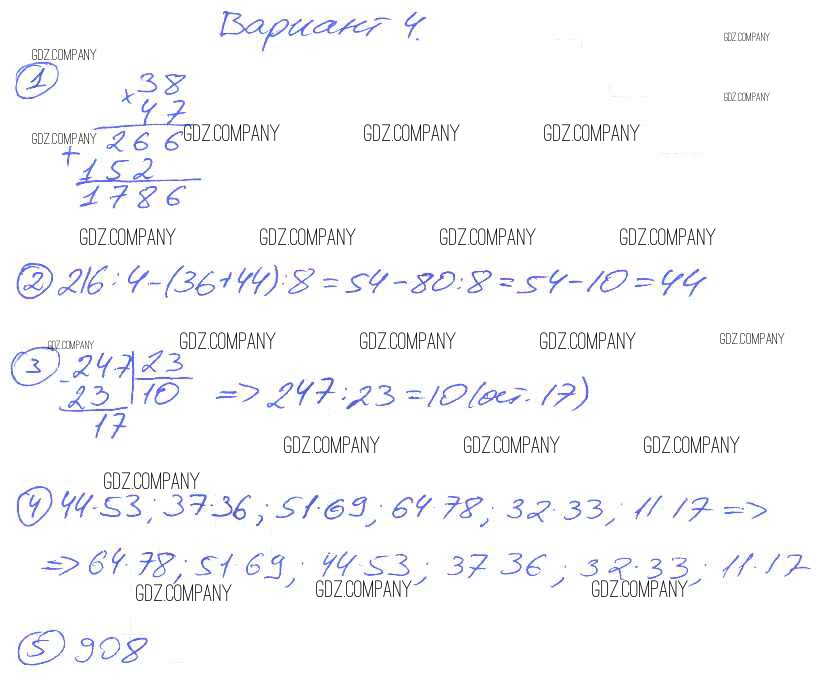 Вариант 4.
GDZ.COMPANY GDZ.COMPANY
① 38
× 47 GDZ.COMPANY
GDZ.COMPANY 266 GDZ.COMPANY GDZ.COMPANY GDZ.COMPANY
+ 152
1786
GDZ.COMPANY GDZ.COMPANY GDZ.COMPANY GDZ.COMPANY
② 216:4-(36+44):8=54-80:8=54-10=44
GDZ.COMPANY GDZ.COMPANY GDZ.COMPANY GDZ.COMPANY GDZ.COMPANY
③ - 247 | 23
23 10 => 247:23=10(ост. 17)
17
GDZ.COMPANY GDZ.COMPANY GDZ.COMPANY
GDZ.COMPANY
④ 44·53; 37·36; 51·69; 64·78; 32·33; 11·17 =>
=> 64·78; 51·69; 44·53; 37·36; 32·33; 11·17
GDZ.COMPANY GDZ.COMPANY GDZ.COMPANY
⑤ 908